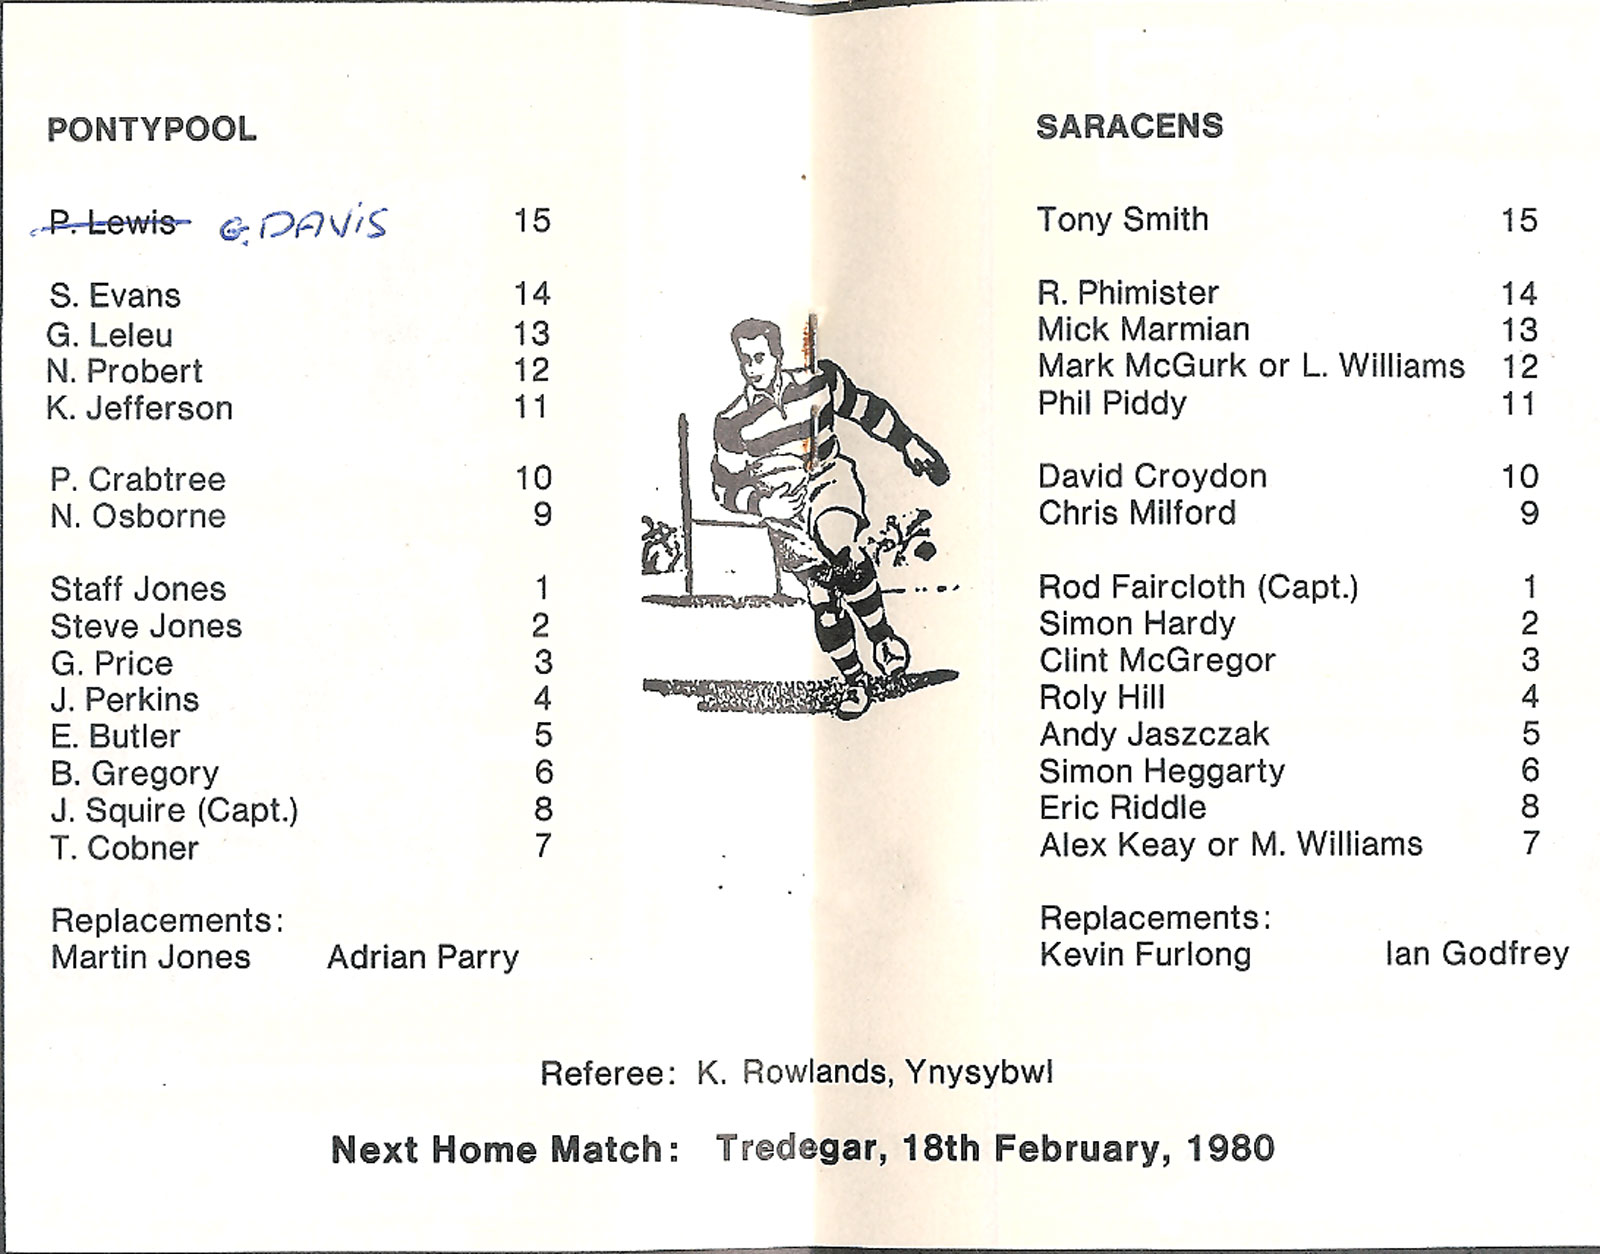 PONTYPOOL
P. Lewis G. DAVIS 15
S. Evans 14
G. Leleu 13
N. Probert 12
K. Jefferson 11
P. Crabtree 10
N. Osborne 9
Staff Jones 1
Steve Jones 2
G. Price 3
J. Perkins 4
E. Butler 5
B. Gregory 6
J. Squire (Capt.) 8
T. Cobner 7
Replacements:
Martin Jones Adrian Parry
SARACENS
Tony Smith 15
R. Phimister 14
Mick Marmian 13
Mark McGurk or L. Williams 12
Phil Piddy 11
David Croydon 10
Chris Milford 9
Rod Faircloth (Capt.) 1
Simon Hardy 2
Clint McGregor 3
Roly Hill 4
Andy Jaszczak 5
Simon Heggarty 6
Eric Riddle 8
Alex Keay or M. Williams 7
Replacements:
Kevin Furlong Ian Godfrey
Referee: K. Rowlands, Ynysybwl
Next Home Match: Tredegar, 18th February, 1980